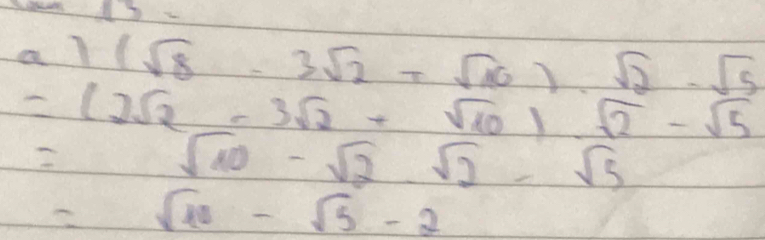 a) (√8 - 3√2 + √10) . √2 - √5
= (2√2 - 3√2 + √10) √2 - √5
= √10 - √2 . √2 - √5
= √10 - √5 - 2